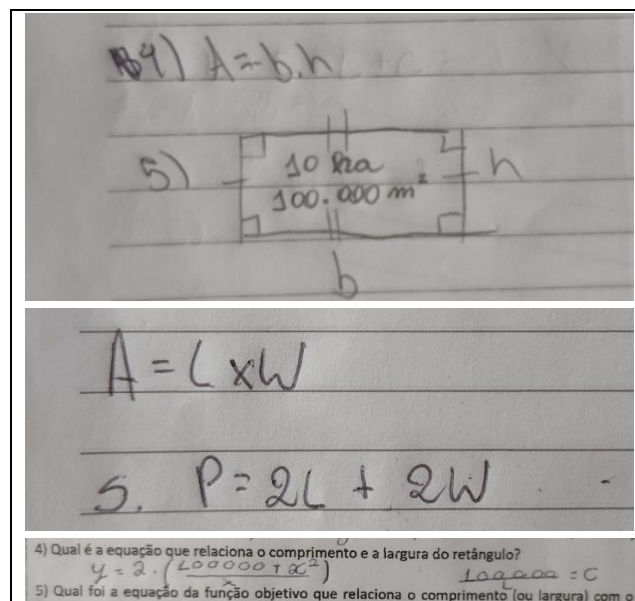 4) A = b.h
5) 10 ha h
100.000 m²
b
A = L x W
5. P = 2L + 2W
4) Qual é a equação que relaciona o comprimento e a largura do retângulo?
y = 2 . (100000 + x²)
x
100000 = C
5) Qual foi a equação da função objetivo que relaciona o comprimento (ou largura) com o